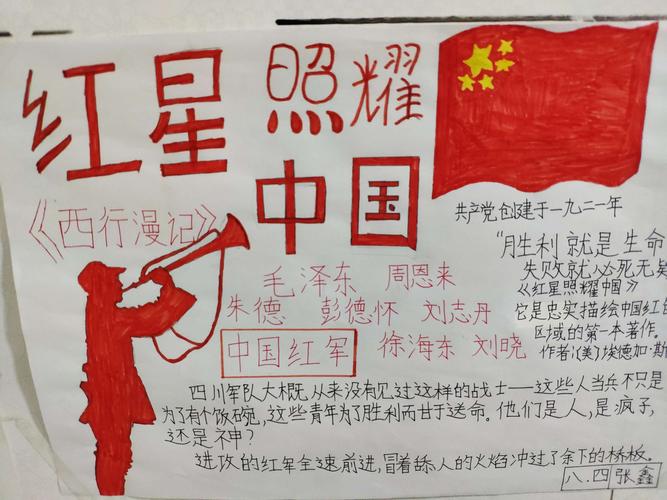 红星照耀
中国
《西行漫记》
共产党创建于一九二一年
“胜利就是生命
失败就必死无疑
《红星照耀中国》
它是忠实描绘中国红色
区域的第一本著作。
作者:(美)埃德加·斯
毛泽东 周恩来
朱德 彭德怀 刘志丹
中国红军 徐海东 刘晓
四川军队大概从来没有见过这样的战士——这些人当兵不只是
为了有个饭碗,这些青年为了胜利而甘于送命。他们是人,是疯子,
还是神?
进攻的红军全速前进,冒着舔人的火焰冲过了余下的桥板。
八.四 张鑫